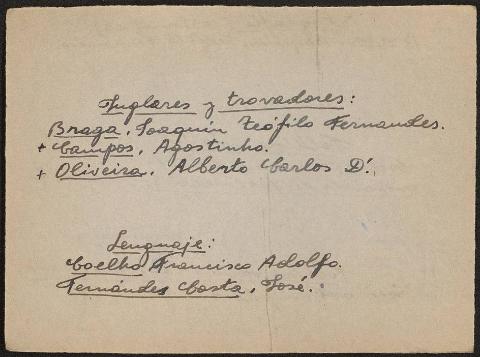 Juglares y trovadores:
Braga, Joaquín Teófilo Fernandes.
+ Campos, Agostinho.
+ Oliveira, Alberto Carlos D'.
Lenguaje:
Coelho Francisco Adolfo.
Fernándes Costa, José.